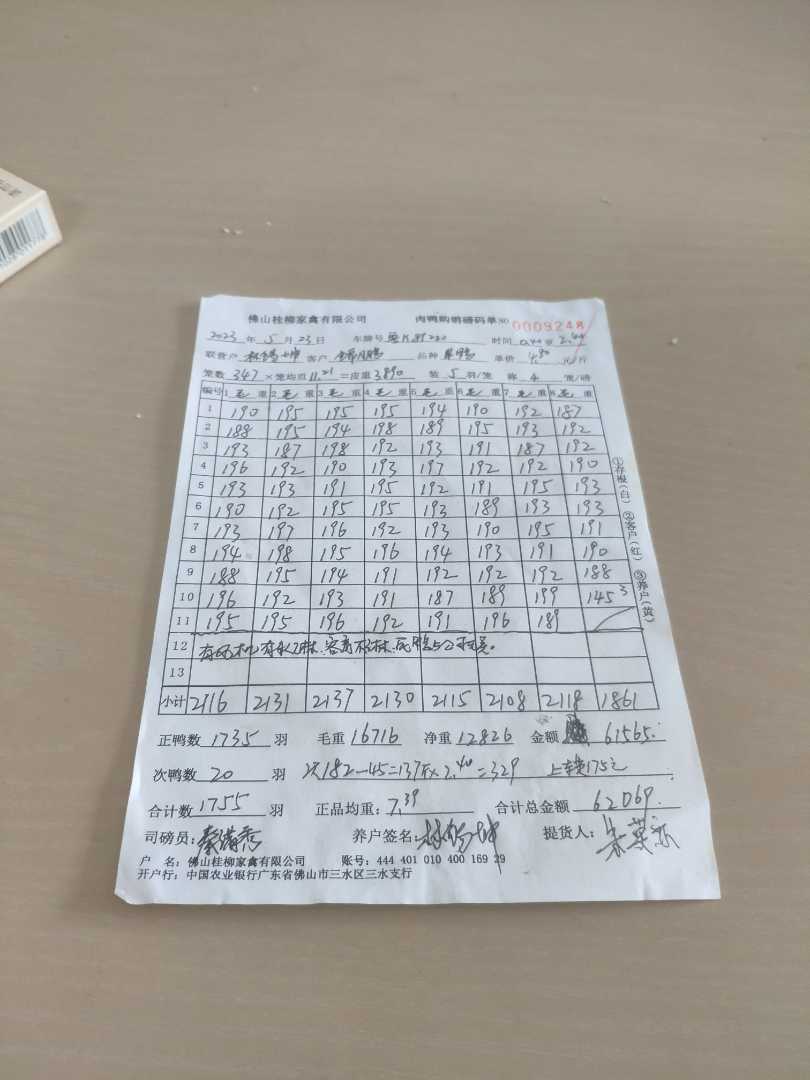 佛山桂柳家禽有限公司 肉鸭购销磅码单 NO 0009248
2023 年 5 月 23 日 车牌号 时间 至
取货户 客户 品种 单价 4.80 元/斤
笼数 347 ×笼均重 11.21 =皮重 3890 装 5 羽/笼 称 4 笼/磅
编号 1 毛 重 2 毛 重 3 毛 重 4 毛 重 5 毛 重 6 毛 重 7 毛 重 8 毛 重
1 190 195 195 195 194 190 192 187
2 188 195 194 198 189 195 193 192
3 193 187 198 192 193 191 187 192
4 196 192 190 193 197 192 192 190
5 193 193 191 195 192 191 195 193
6 190 192 195 195 193 189 193 193
7 193 197 196 192 193 190 195 191
8 194 198 195 196 194 193 191 190
9 188 195 194 191 192 192 192 188
10 196 192 193 191 187 189 199 145 3
11 195 195 196 192 191 196 189
12
13
小计 2116 2131 2137 2130 2115 2108 2118 1861
①存根(白) ②客户(红) ③养户(黄)
正鸭数 1735 羽 毛重 16716 净重 12826 金额 61565
次鸭数 20 羽 次182-45=137斤×2.40=329 175元
合计数 1755 羽 正品均重: 7.39 合计总金额 62069
司磅员: 养户签名: 提货人:
户 名: 佛山桂柳家禽有限公司 账号: 444 401 010 400 169 29
开户行: 中国农业银行广东省佛山市三水区三水支行